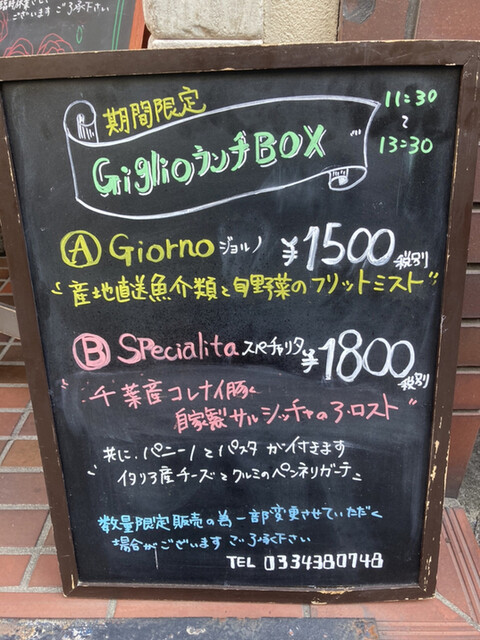 ございます ご了承下さい
期間限定
GiglioランチBOX
11:30
〜
13:30
Ⓐ Giorno ジョルノ ¥1500 税別
"産地直送魚介類と旬野菜のフリットミスト"
Ⓑ SPecialita スペチャリタ ¥1800 税別
"千葉産コレナイ豚と
自家製サルシッチャのアロスト"
共に、パニーノとパスタが付きます
"イタリア産チーズとクルミのペンネリガーテ"
数量限定販売の為一部変更させていただく
場合がございます ご了承下さい
TEL 0334380748